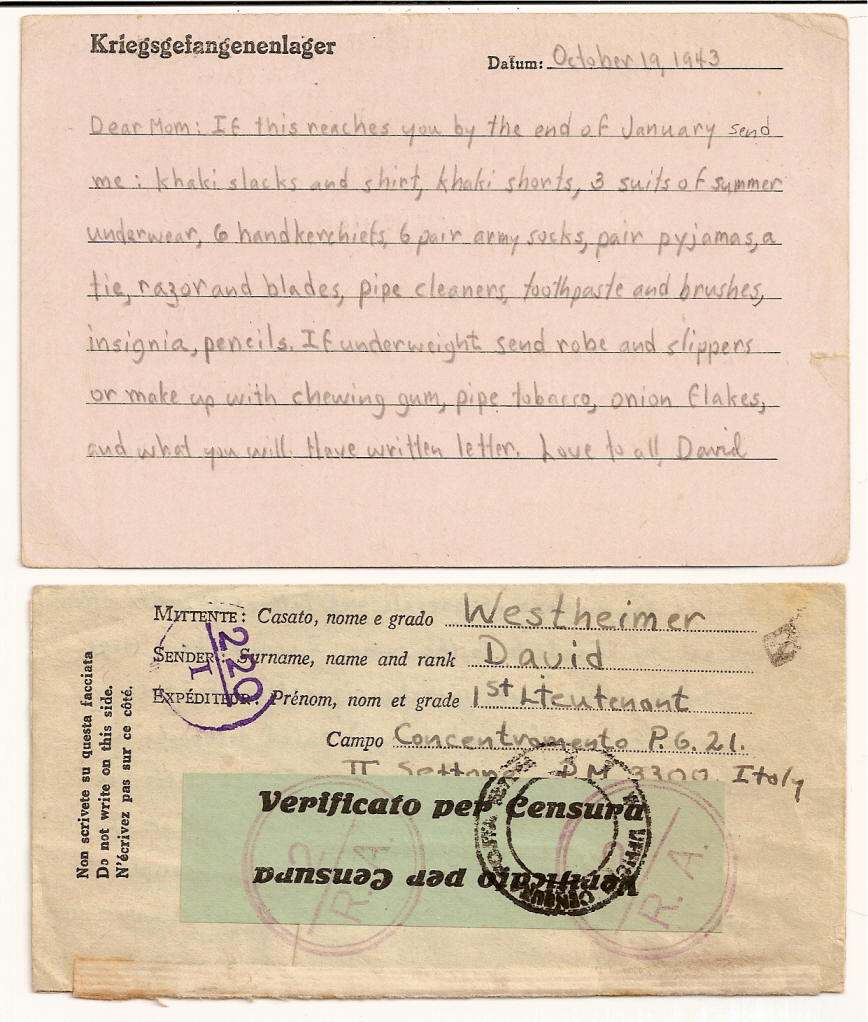 Kriegsgefangenenlager
Datum: October 19, 1943
Dear Mom: If this reaches you by the end of January send
me: khaki slacks and shirt, khaki shorts, 3 suits of summer
underwear, 6 handkerchiefs, 6 pair army socks, pair pyjamas, a
tie, razor and blades, pipe cleaners, toothpaste and brushes,
insignia, pencils. If underweight send robe and slippers
or make up with chewing gum, pipe tobacco, onion flakes,
and what you will. Have written letter. Love to all, David
Mittente: Casato, nome e grado Westheimer
Sender: Surname, name and rank David
Expéditeur: Prénom, nom et grade 1st Lieutenant
Campo Concentramento P.G. 21.
II P.M 3300, Italy
Non scrivete su questa facciata
Do not write on this side.
N'écrivez pas sur ce côté.
220
I
Verificato per Censura
Verificato per Censura
2
R.A.
2
R.A.